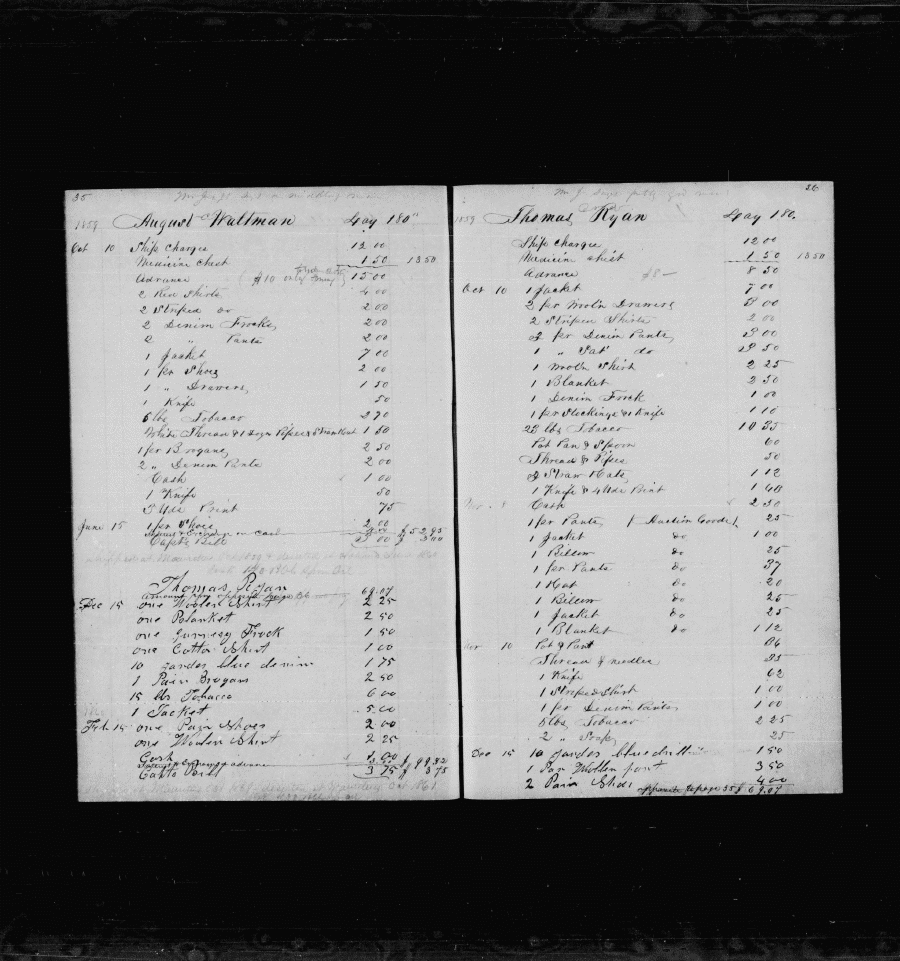 35
1859 August Waltman Lay 180"
Oct 10 Ship Charges 12 00
Medicine Chest 1 50 13 50
Advance ( $10 only ) 15 00
2 Red Shirts 4 00
2 Striped do 2 00
2 Denim Frocks 2 00
2 " Pants 2 00
1 Jacket 7 00
1 pr Shoes 2 00
1 " Drawers 1 50
1 Knife 50
6 lbs Tobacco 2 70
White Thread & 1 Dozn Pipes & Straw Hat 1 50
1 pr Brogans 2 50
2 " Denim Pants 2 00
Cash 1 00
1 Knife 50
5 Yds Print 75
June 15 1 pr Shoes 2 00
Interest & Exchange on Cash $52.95
Capts Bill 3 00 $ 3.00
Thomas Ryan
Amount from opposite page 26 69.07
Dec 15 one Woolen Shirt 2 25
one Blanket 2 50
one Gurnsey Frock 1 50
one Cotton Shirt 1 00
10 yardes blue denim 1 75
1 Pair Brogan 2 50
15 lbs Tobacco 6 00
1 Jacket 5 00
Feb 15 one Pair Shoes 2 00
one Woolen Shirt 2 25
Cash 1 00
Capts Bill 3 75 $ 3 75
26
1859 Thomas Ryan Lay 180
Ship Charges 12 00
Medicine Chest 1 50 13 50
Advance $8 — 8 50
Oct 10 1 Jacket 7 00
2 per Wooln Drawers 3 00
2 Striped Shirts 2 00
3 per Denim Pants 3 00
1 " Sat do 2 50
1 Wooln Shirt 2 25
1 Blanket 2 50
1 Denim Frock 1 00
1 per Stockings & Knife 1 10
23 lbs Tobacco 10 35
Pot Pan & Spoon 60
Thread & Pipes 50
2 Straw Hats 1 12
1 Knife & 4 Yds Print 1 10
Nov Cash 2 50
1 per Pants ( Auction Goods ) 25
1 Jacket do 1 00
1 Billow do 25
1 per Pants do 37
1 Hat do 20
1 Billow do 25
1 Jacket do 25
1 Blanket do 1 12
Nov 10 Pot & Pan
Thread & needles
1 Knife 62
1 Striped Shirt 1 00
1 per Denim Pants 1 00
5 lbs Tobacco 2 25
2 " Soap 25
Dec 15 10 yardes blue drilling 1 50
1 Par Wollen pant 3 50
2 Pair Shoes 4 00
opposite to page 35 $ 69.07